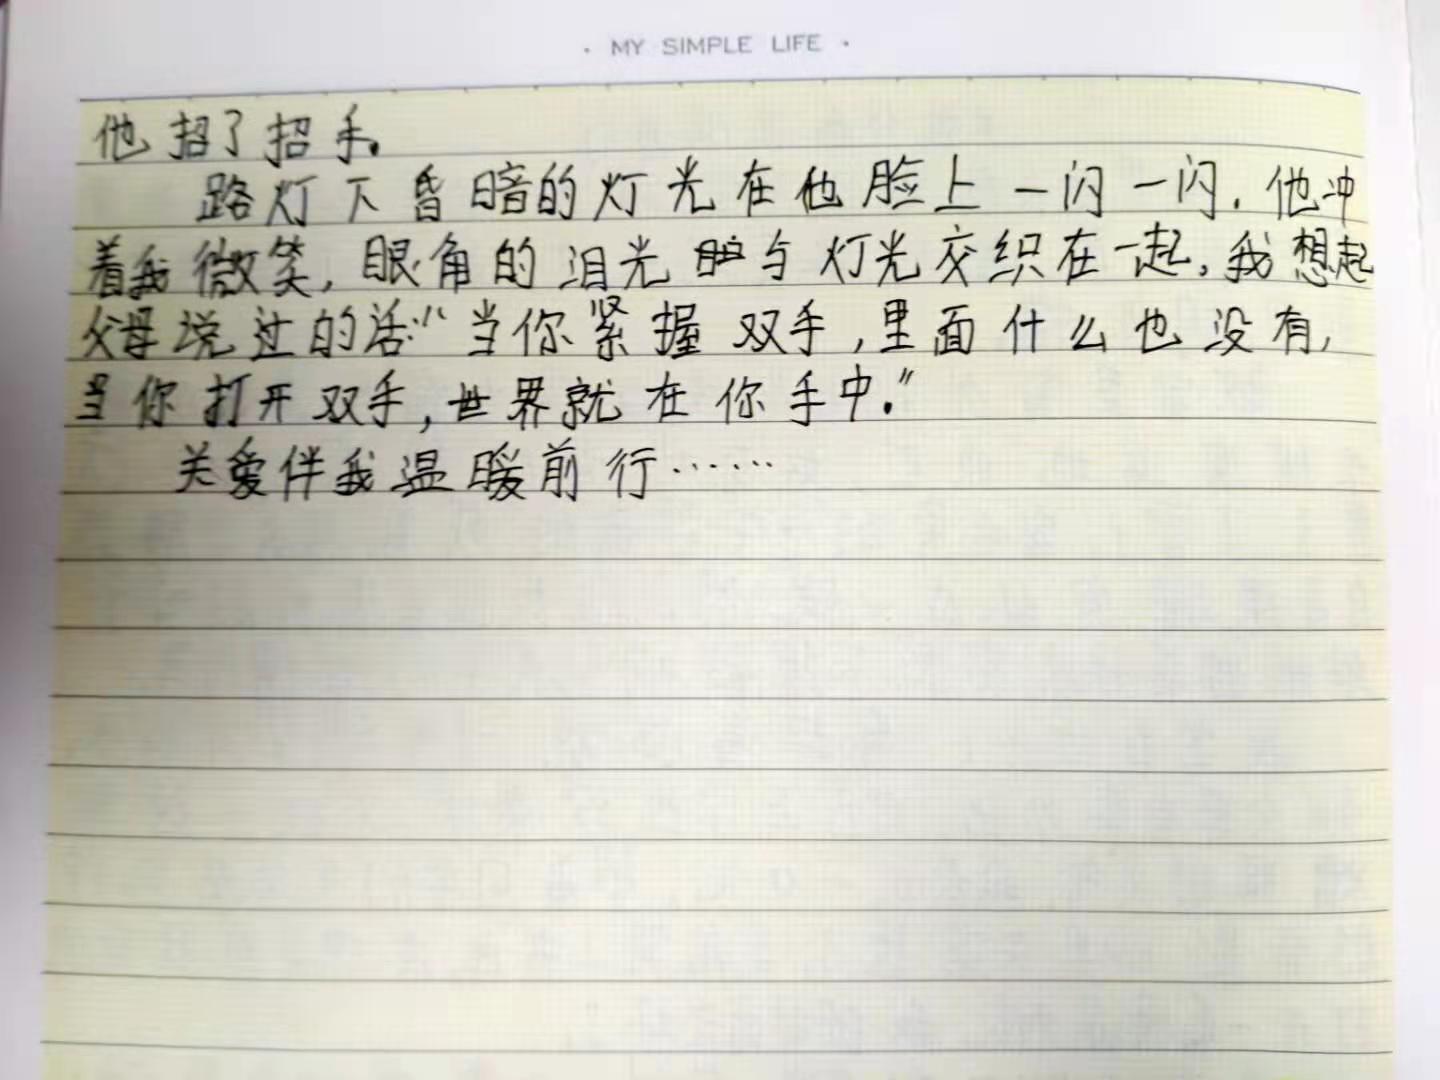 · MY SIMPLE LIFE ·
他招了招手。
路灯下昏暗的灯光在他脸上一闪一闪.他冲
着我微笑,眼角的泪光与灯光交织在一起,我想起
父母说过的话:“当你紧握双手,里面什么也没有,
当你打开双手,世界就在你手中.”
关爱伴我温暖前行……